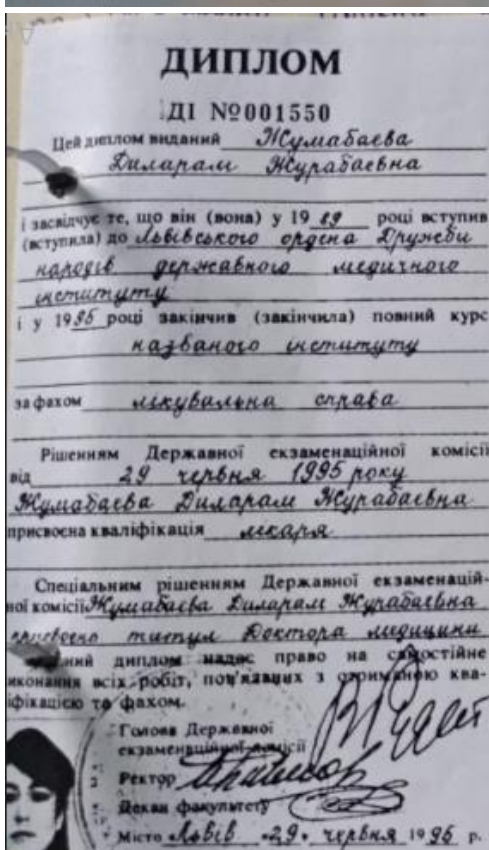 ДИПЛОМ
ДІ №001550
Цей диплом виданий Жумабаєва
Диларам Журабаєвна
і засвідчує те, що він (вона) у 1989 році вступив
(вступила) до Львівського ордена Дружби
народів державного медичного
інституту
і у 1995 році закінчив (закінчила) повний курс
названого інституту
за фахом лікувальна справа
Рішенням Державної екзаменаційної комісії
від 29 червня 1995 року
Жумабаєва Диларам Журабаєвна
присвоєна кваліфікація лікаря
Спеціальним рішенням Державної екзаменацій-
ної комісії Жумабаєва Диларам Журабаєвна
присвоєно титул Доктора медицини
диплом надає право на самостійне
виконання всіх робіт, пов'язаних з отриманою ква-
ліфікацією та фахом.
Голова Державної
екзаменаційної комісії
Ректор
Декан факультету
Місто Львів «29» червня 1995 р.